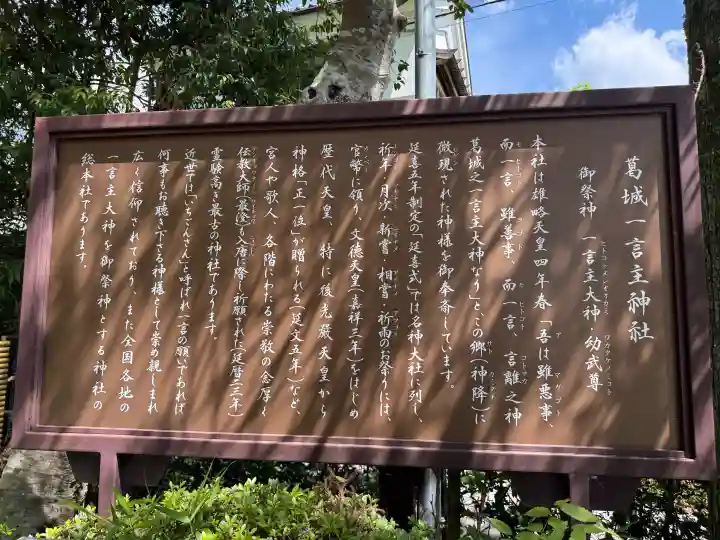 葛城一言主神社
御祭神　一言主大神・幼武尊
本社は雄略天皇四年春「吾は雖悪事、
而一言、雖善事、而一言、言離之神
葛城之一言主大神なり」と、この郷(神降)に
微現された神様を御奉斎しています。
延喜五年制定の「延喜式」では名神大社に列し、
祈年・月次・新嘗・相嘗・祈雨のお祭りには、
官幣に預り、文徳天皇(嘉祥三年)をはじめ
歴代天皇、特に後光厳天皇から
神格「正一位」が贈られる(延文五年)など、
宮人や歌人、各階にわたる崇敬の念厚く
伝教大師(最澄)も入唐に際し祈願された(延暦二三年)
霊験高き最古の神社であります。
近世では「いちごんさん」と呼ばれ一言の願いであれば
何事もお聴き下さる神様として崇め親しまれ
広く信仰されており、また全国各地の
一言主大神を御祭神とする神社の
総本社であります。